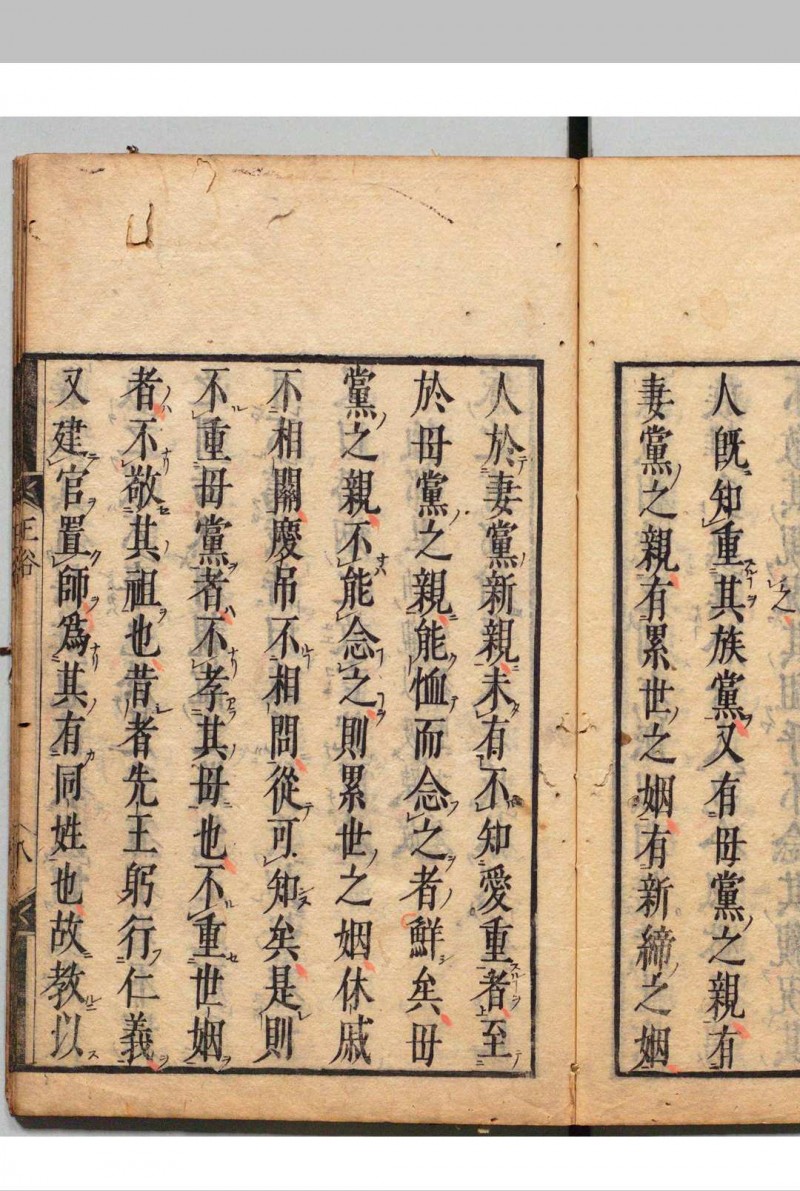 人既知重其族黨又有母黨之親有
妻黨之親有累世之姻有新締之姻
人於妻黨新親未有不知愛重者至
於母黨之親能恤而念之者鮮矣母
黨之親不能念之則累世之姻休戚
不相關慶吊不相問從可知矣是則
不重母黨者不孝其母也不重世姻
者不敬其祖也昔者先王躬行仁義
又建官置師爲其有同姓也故教以
正俗
八